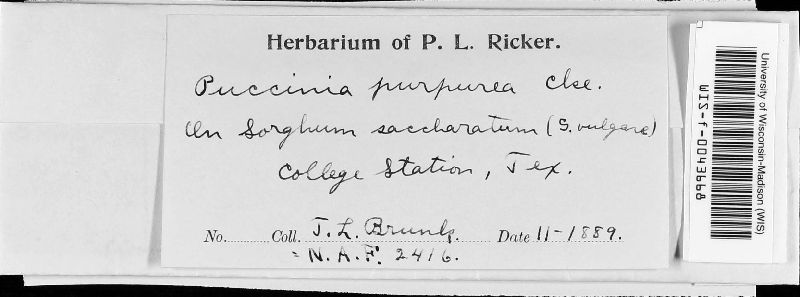 Herbarium of P. L. Ricker.
Puccinia purpurea Cke.
On Sorghum saccharatum (S. vulgare)
College Station, Tex.
No. Coll. T. L. Brunk. Date 11-1889.
= N. A. F. 2416.
University of Wisconsin-Madison (WIS)
WIS-f-0043668